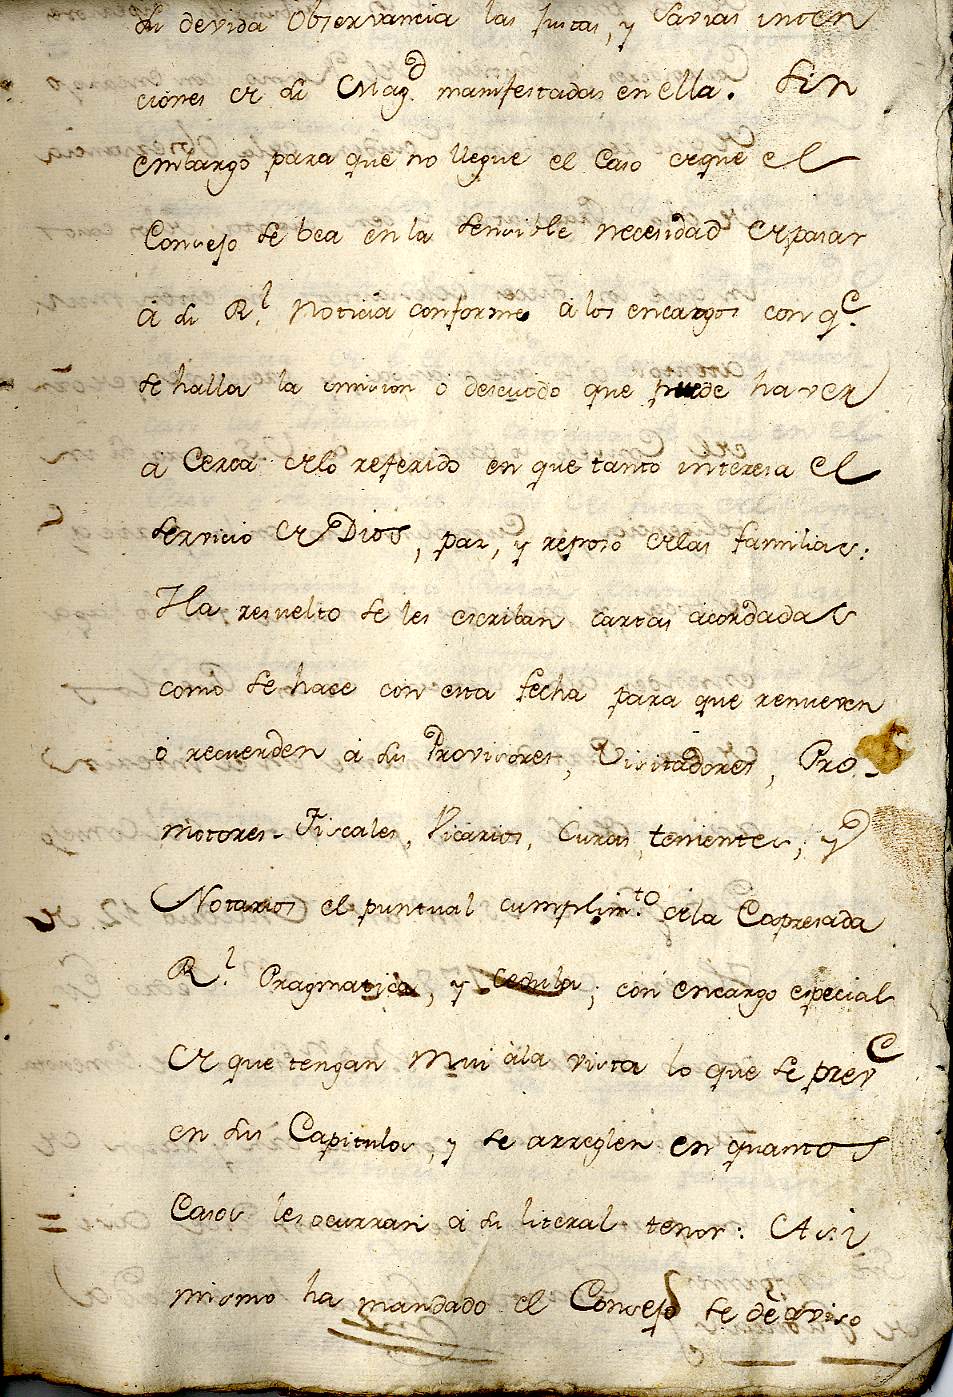 su devida Observancia las Justas, y Savias inten
ciones de su Mag.d manifestadas en ella. Sin
embargo para que no llegue el Caso deque el
Consejo se bea en la sensible necesidad de pasar
á su R.l Noticia conforme á los encargos con q.e
se halla la omision o descuido que puede haver
a Cerca delo referido en que tanto interesa el
servicio de Dios, paz, y reposo delas familias:
Ha resuelto se les escriban cartas acordadas
como se hace con esta fecha para que renueven
ó recuerden á sus Provisores, Visitadores, Pro-
motores-Fiscales, Vicarios, Curas, tenientes, y
Notarios el puntual cumplim.to dela Expresada
R.l Pragmatica, y cedula; con encargo especial
de que tengan mui ála vista lo que se preve
en sus Capitulos, y se arreglen en quantos
Casos les ocurran á su literal tenor: Asi
mismo ha mandado el Consejo se dé aviso